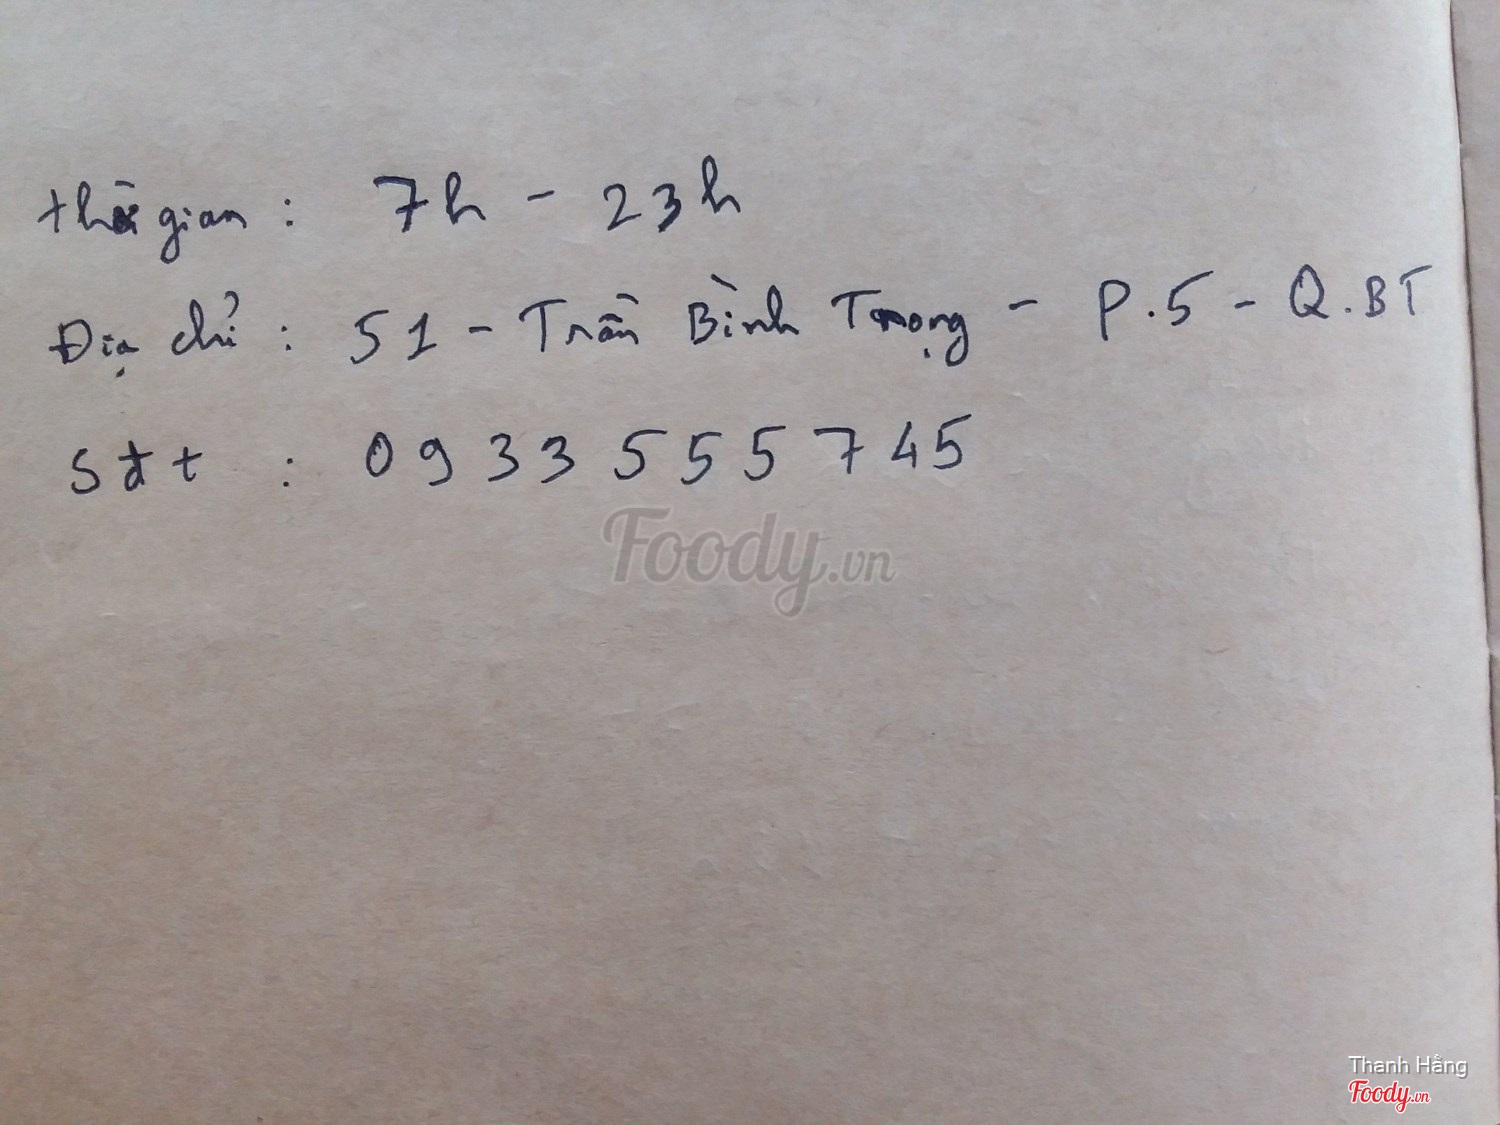 thời gian : 7h - 23h
Địa chỉ : 51 - Trần Bình Trọng - P.5 - Q.BT
Sđt : 0933 555 745
Foody.vn
Thanh Hằng
Foody.vn